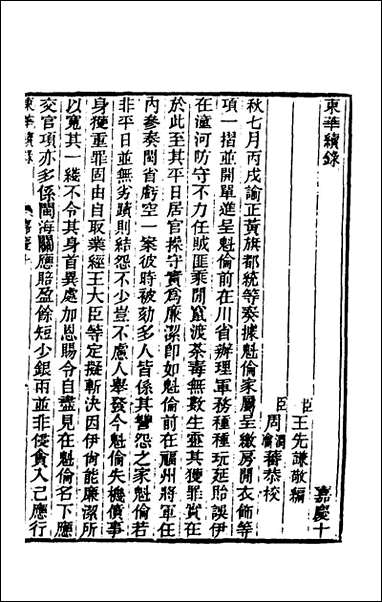 東華續錄
嘉慶十
臣王先謙敬編
臣周潤蕃周瀹蕃恭校
秋七月丙戌諭正黃旗都統等奏據魁倫家屬呈繳房間衣飾等
項一摺並開單進呈魁倫前在川省辦理軍務種種玩延貽誤伊
在潼河防守不力任賊匪乘閒竄渡荼毒無數生靈其獲罪實在
於此至其平日居官操守實爲廉潔即如魁倫前在福州將軍任
內參奏閩省虧空一案彼時被劾多人皆係其讐怨之家魁倫若
非平日並無劣蹟則結怨不少豈不慮人舉發今魁倫失機僨事
身獲重罪固由自取業經王大臣等定擬斬決因伊尙能廉潔所
以寬其一綫不令其身首異處加恩賜令自盡見在魁倫名下應
交官項亦多係閩海關應賠盈餘短少銀兩並非侵貪入己應行
東華續錄 嘉慶十